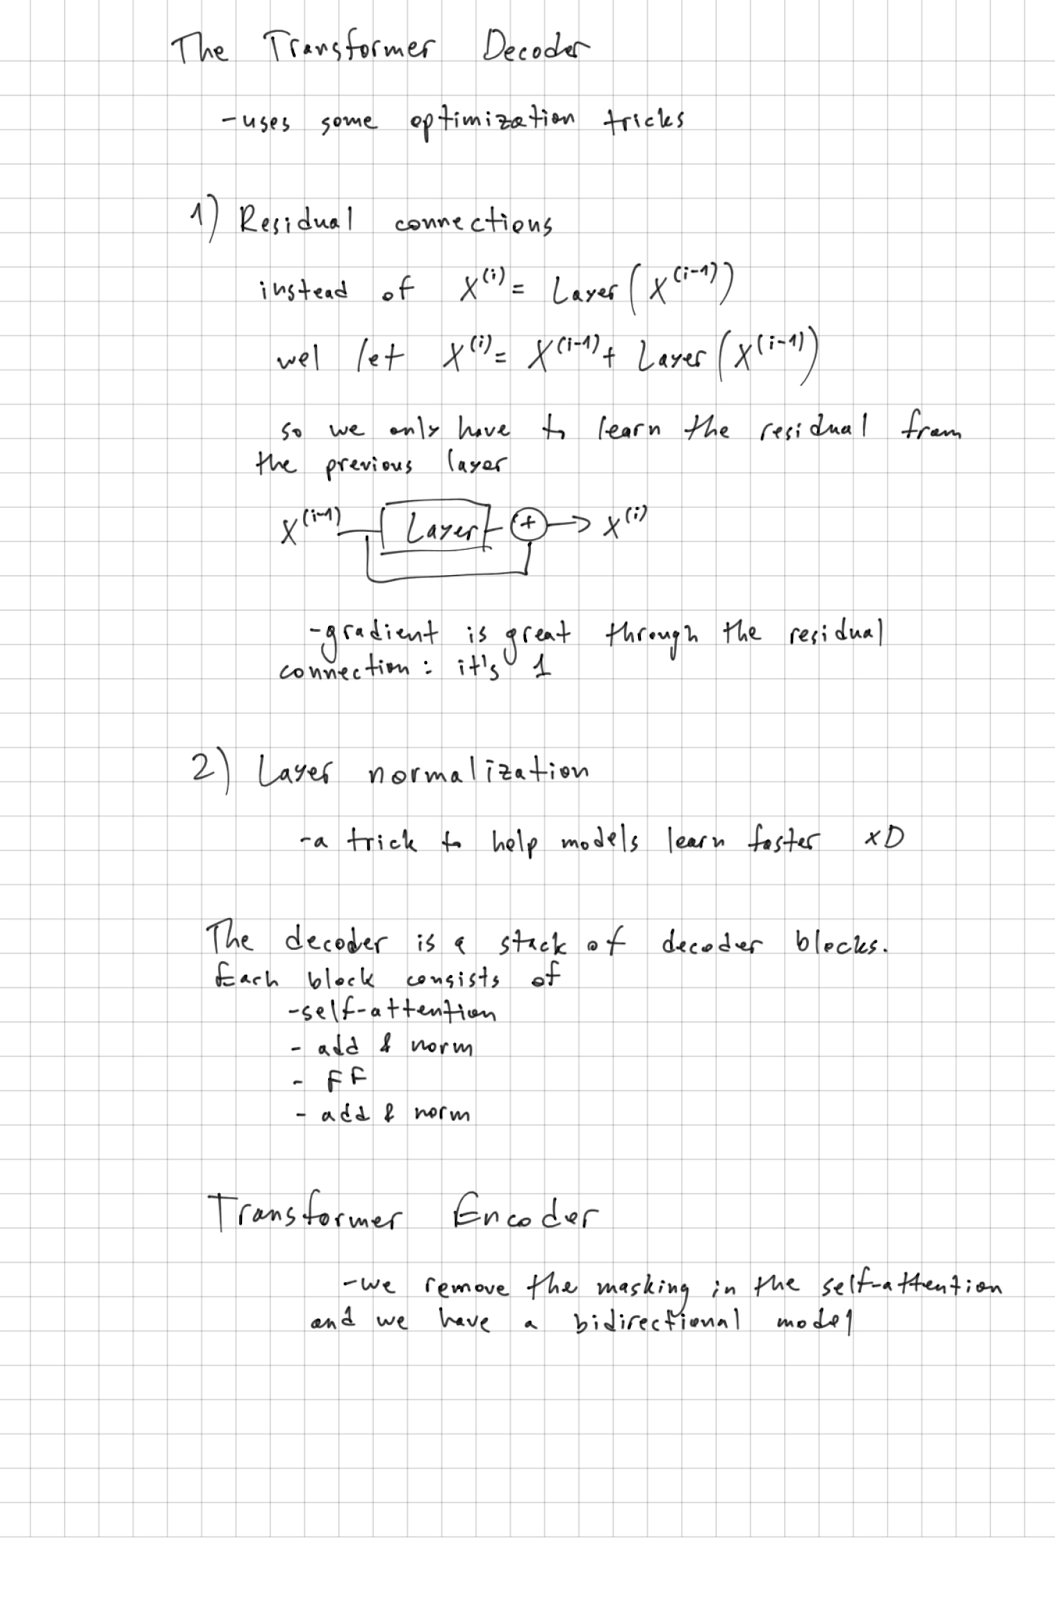 The Transformer Decoder
-uses some optimization tricks
1) Residual connections
instead of X^(i) = Layer(X^(i-1))
wel let X^(i) = X^(i-1) + Layer(X^(i-1))
so we only have to learn the residual from
the previous layer
X^(i-1) Layer + → X^(i)
-gradient is great through the residual
connection: it's 1
2) Layer normalization
-a trick to help models learn faster xD
The decoder is a stack of decoder blocks.
Each block consists of
-self-attention
- add & norm
- FF
- add & norm
Transformer Encoder
-we remove the masking in the self-attention
and we have a bidirectional model